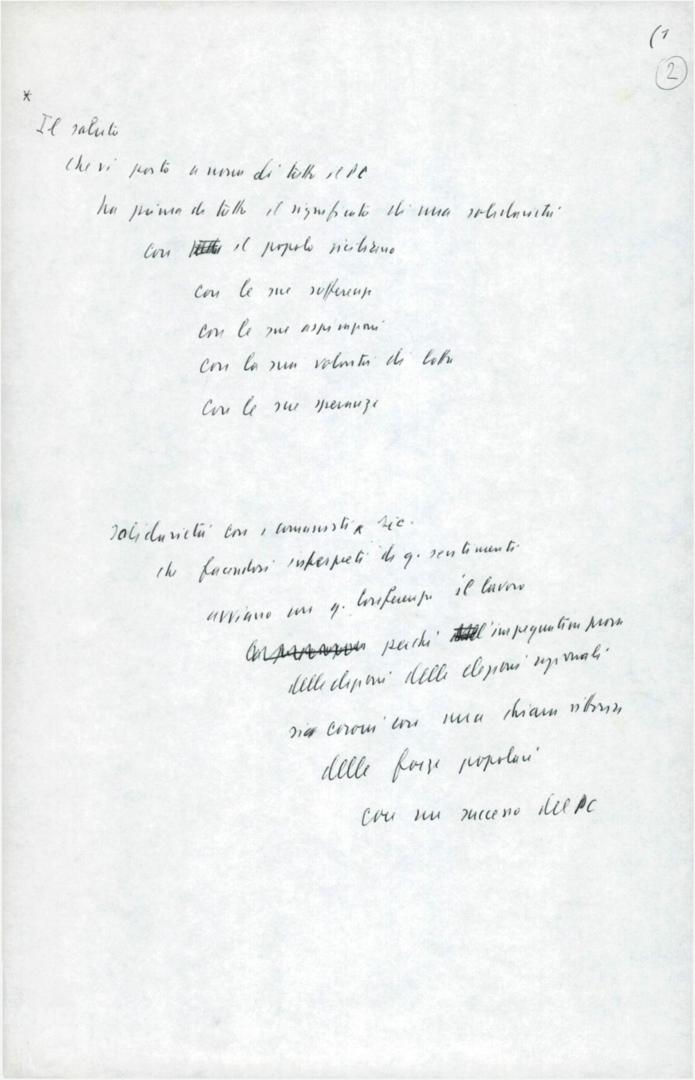 (1
2
*
Il saluto
che vi porto a nome di tutto il PC
ha prima di tutto il significato di una solidarietà
con il popolo siciliano
con le sue sofferenze
con le sue aspirazioni
con la sua volontà di lotta
con le sue speranze
Solidarietà con i comunisti sic.
che facendosi interpreti di q. sentimenti
avviano con q. Conferenza il lavoro
perché l'impegnativa prova
delle elezioni delle elezioni regionali
sia coroni con una chiara vittoria
delle forze popolari
con un successo del PC